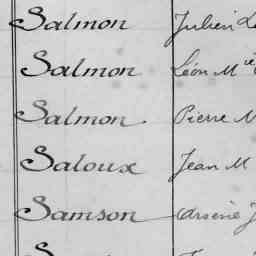 Salmon Julien
Salmon Léon M
Salmon Pierre M
Saloux Jean M
Samson Arsène J